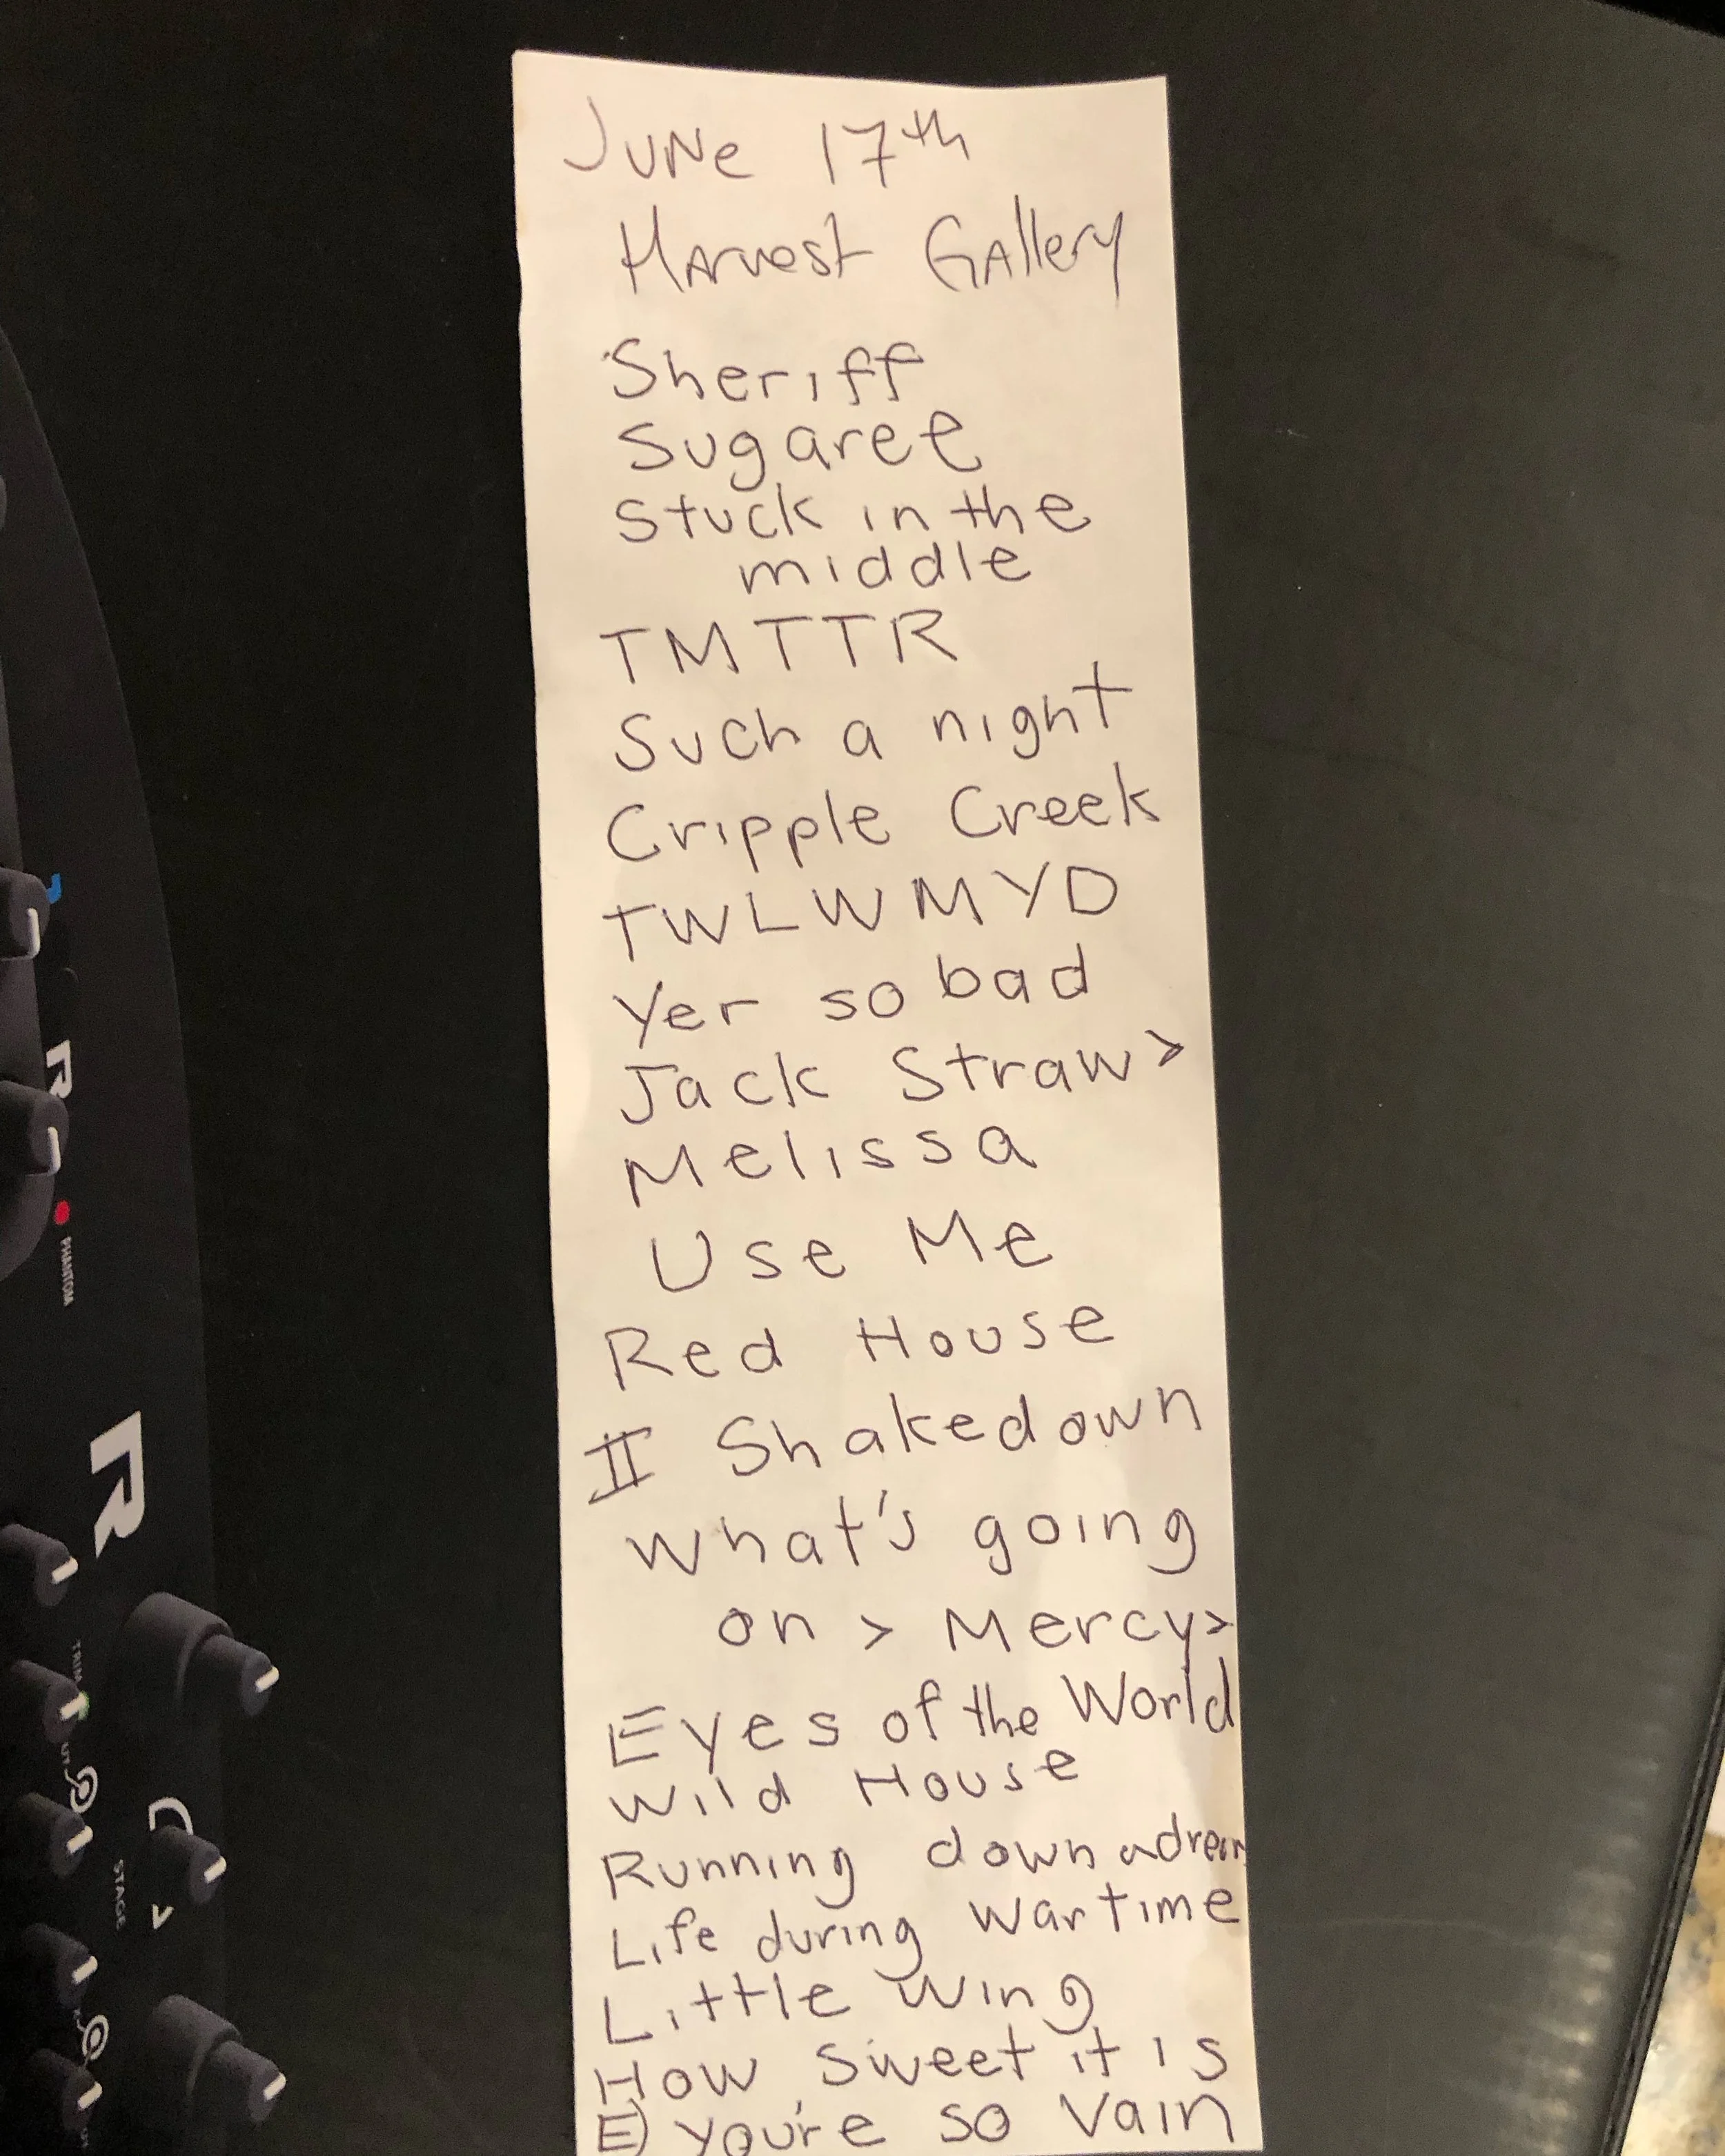 June 17th
Harvest Gallery
Sheriff
Sugaree
Stuck in the
middle
TMTTR
Such a night
Cripple Creek
TWLWMYD
Yer so bad
Jack Straw >
Melissa
Use Me
Red House
II Shakedown
What's going
on > Mercy >
Eyes of the World
Wild House
Running down a dream
Life during wartime
Little Wing
How Sweet it is
E) you're so Vain
R
PHANTOM
R
STAGE